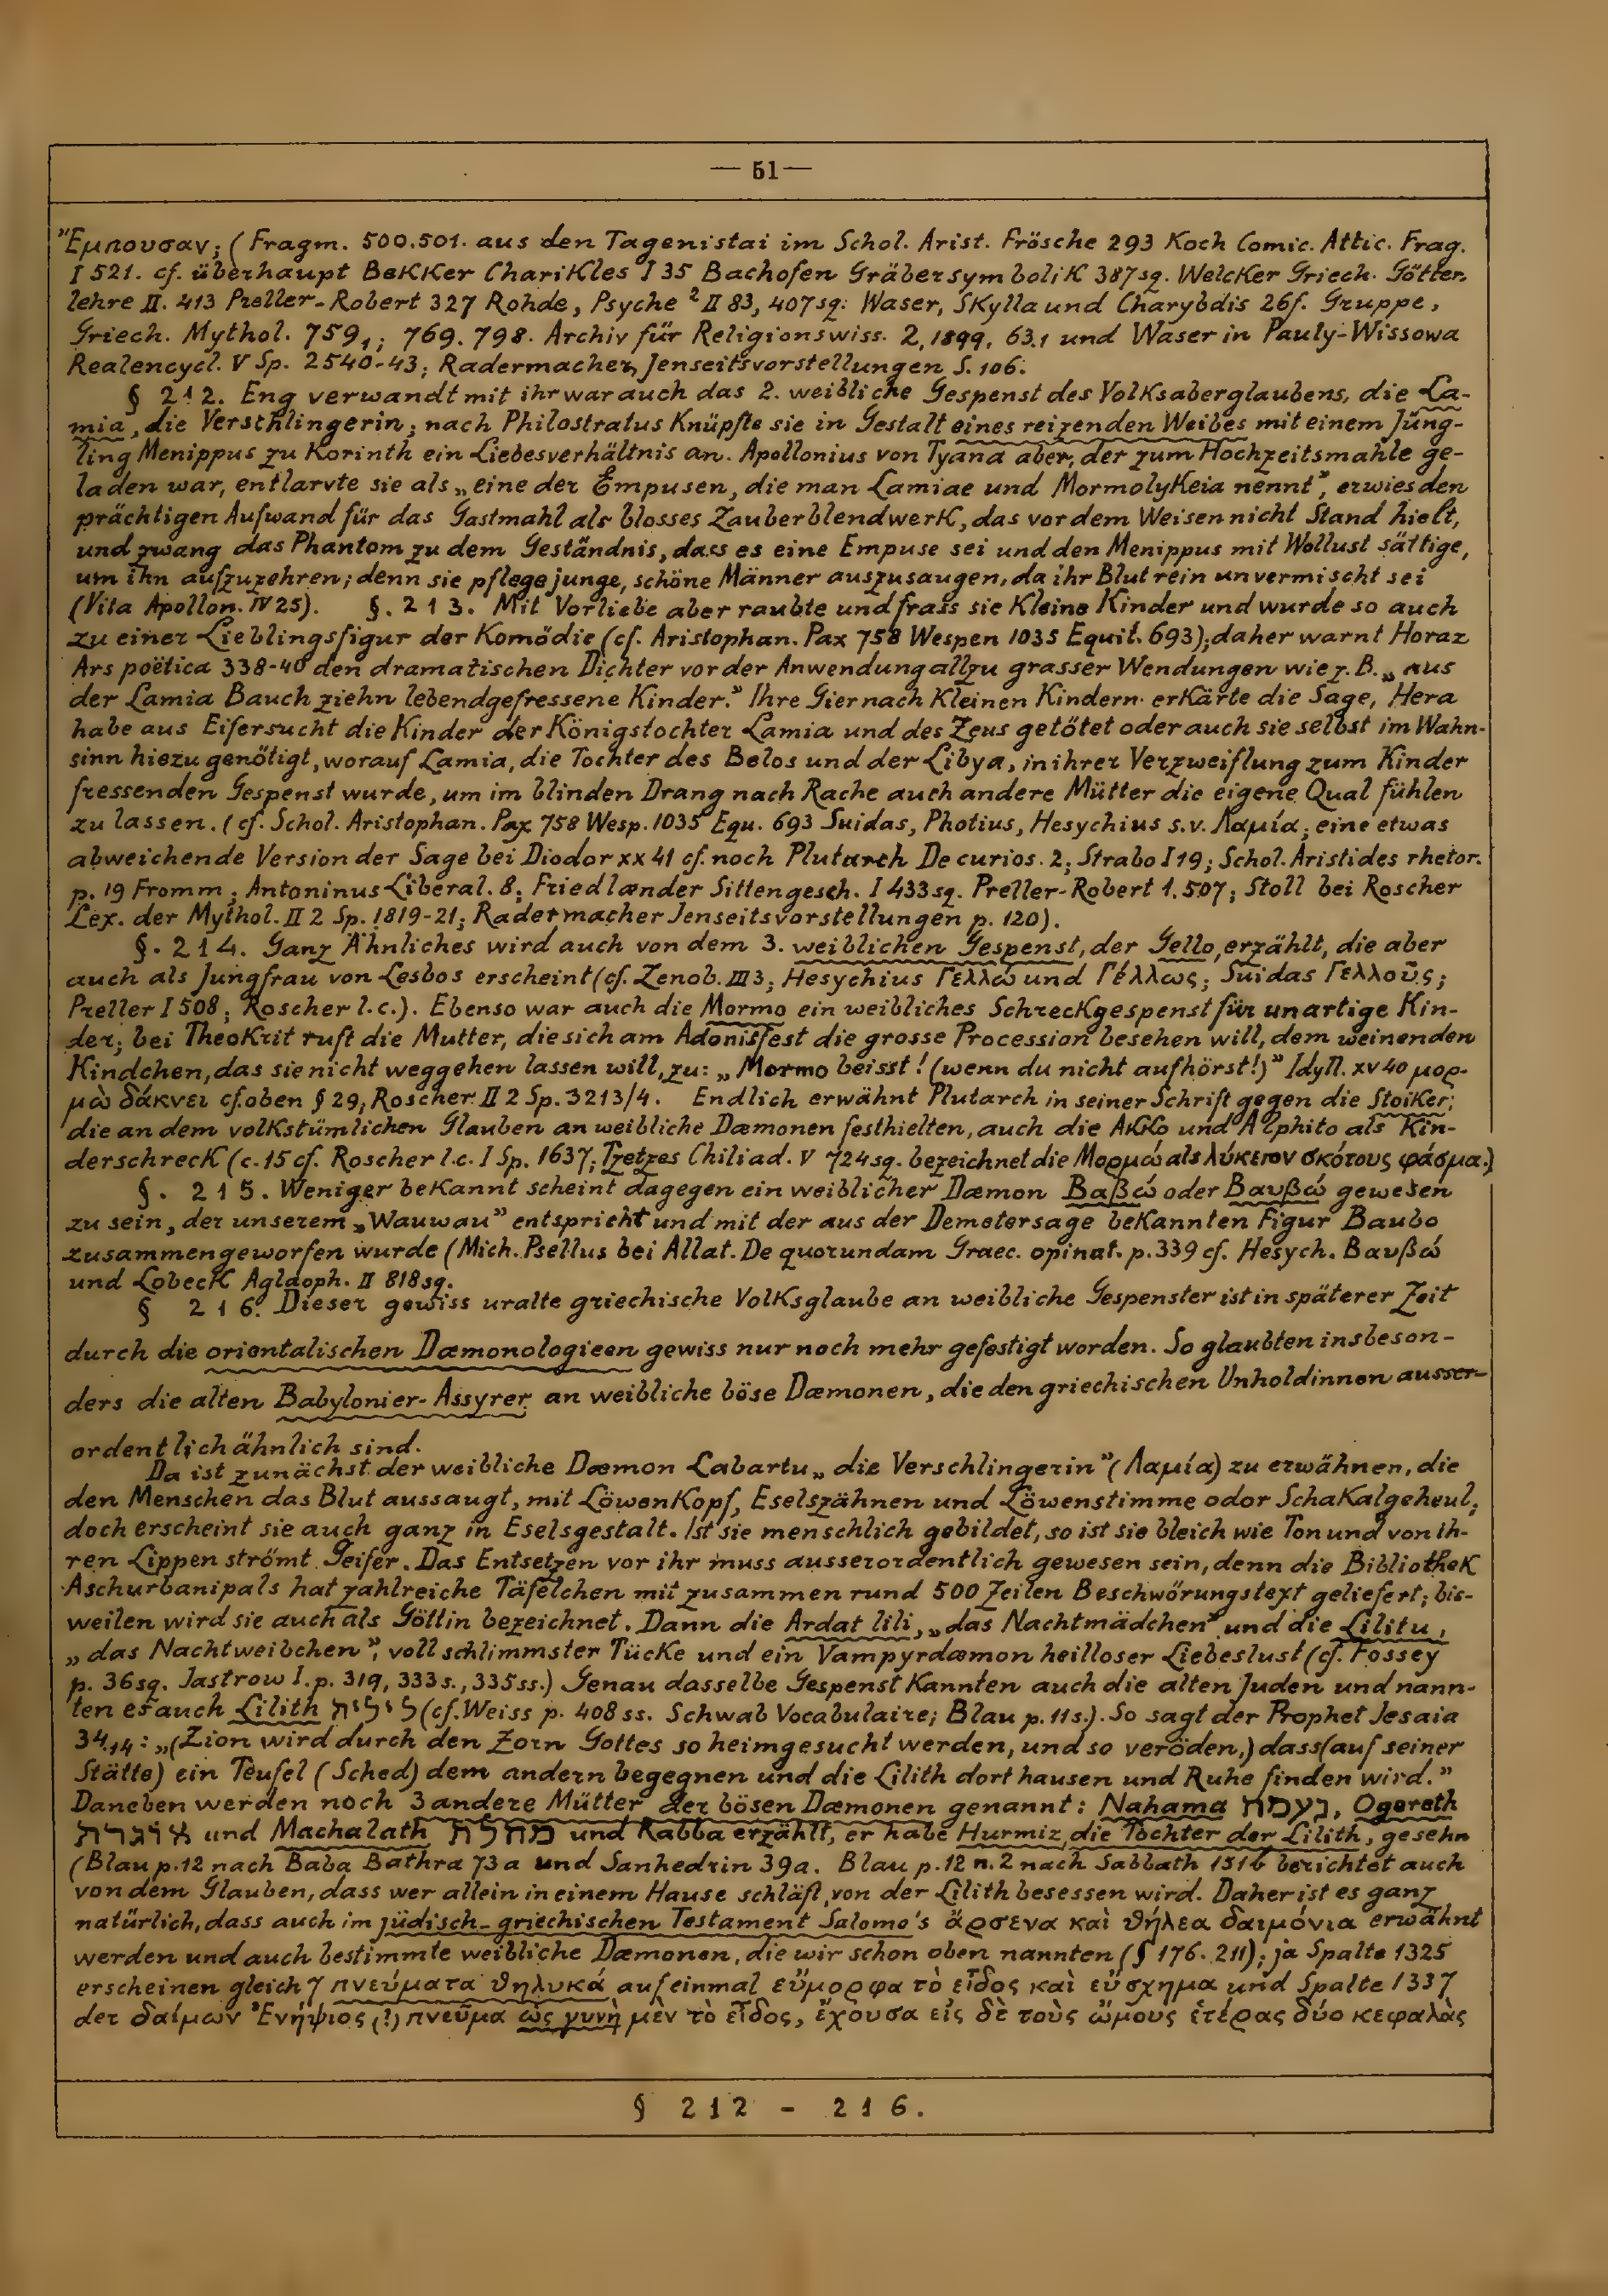 — 51 —
"Εμπουσαν; (Fragm. 500.501. aus den Tagenistai im Schol. Arist. Frösche 293 Koch Comic. Attic. Frag.
I 521. cf. überhaupt Bekker Charikles I 35 Bachofen Gräbersymbolik 387sq. Welcker Griech. Götter-
lehre II. 413 Preller-Robert 327 Rohde, Psyche ² II 83, 407sq: Waser, Skylla und Charybdis 26f. Gruppe,
Griech. Mythol. 759,1; 769. 798. Archiv für Religionswiss. 2, 1899, 63.1 und Waser in Pauly-Wissowa
Realencycl. V Sp. 2540-43; Radermacher, Jenseitsvorstellungen S. 106.
§ 212. Eng verwandt mit ihr war auch das 2. weibliche Gespenst des Volksaberglaubens, die La-
mia, die Verschlingerin; nach Philostratus knüpfte sie in Gestalt eines reizenden Weibes mit einem Jüng-
ling Menippus zu Korinth ein Liebesverhältnis an. Apollonius von Tyana aber, der zum Hochzeitsmahle ge-
laden war, entlarvte sie als „eine der Empusen, die man Lamiae und Mormolykeia nennt”, erwies den
prächtigen Aufwand für das Gastmahl als blosses Zauberblendwerk, das vor dem Weisen nicht Stand hielt,
und zwang das Phantom zu dem Geständnis, dass es eine Empuse sei und den Menippus mit Wollust sättige,
um ihn aufzuzehren; denn sie pflege junge, schöne Männer auszusaugen, da ihr Blut rein unvermischt sei
(Vita Apollon. IV 25). §. 213. Mit Vorliebe aber raubte und frass sie kleine Kinder und wurde so auch
zu einer Lieblingsfigur der Komödie (cf. Aristophan. Pax 758 Wespen 1035 Equit. 693); daher warnt Horaz
Ars poëtica 338-40 den dramatischen Dichter vor der Anwendung allzu grasser Wendungen wie z. B. „aus
der Lamia Bauch ziehn lebendgefressene Kinder.” Ihre Gier nach kleinen Kindern erkärte die Sage, Hera
habe aus Eifersucht die Kinder der Königstochter Lamia und des Zeus getötet oder auch sie selbst im Wahn-
sinn hiezu genötigt, worauf Lamia, die Tochter des Belos und der Libya, in ihrer Verzweiflung zum Kinder
fressenden Gespenst wurde, um im blinden Drang nach Rache auch andere Mütter die eigene Qual fühlen
zu lassen. (cf. Schol. Aristophan. Pax 758 Wesp. 1035 Equ. 693 Suidas, Photius, Hesychius s.v. Λαμία; eine etwas
abweichende Version der Sage bei Diodor xx 41 cf. noch Plutarch De curios. 2; Strabo I 19; Schol. Aristides rhetor.
p. 19 Fromm; Antoninus Liberal. 8; Friedlænder Sittengesch. I 433sq. Preller-Robert 1.507; Stoll bei Roscher
Lex. der Mythol. II 2 Sp. 1819-21; Radermacher Jenseitsvorstellungen p. 120).
§. 214. Ganz Ähnliches wird auch von dem 3. weiblichen Gespenst, der Gello, erzählt, die aber
auch als Jungfrau von Lesbos erscheint (cf. Zenob. III 3; Hesychius Γελλώ und Γέλλως; Suidas Γελλοῦς;
Preller I 508; Roscher l.c.). Ebenso war auch die Mormo ein weibliches Schreckgespenst für unartige Kin-
der; bei Theokrit ruft die Mutter, die sich am Adonisfest die grosse Procession besehen will, dem weinenden
Kindchen, das sie nicht weggehen lassen will, zu: „Mormo beisst! (wenn du nicht aufhörst!)” Idyll. xv 40 μορ-
μὼ δάκνει cf. oben § 29; Roscher II 2 Sp. 3213/4. Endlich erwähnt Plutarch in seiner Schrift gegen die Stoiker;
die an dem volkstümlichen Glauben an weibliche Dæmonen festhielten, auch die Akko und Alphito als Kin-
derschreck (c. 15 cf. Roscher l.c. I Sp. 1637; Tzetzes Chiliad. V 724sq. bezeichnet die Μορμώ als λύκειον σκότους φάσμα.)
§. 215. Weniger bekannt scheint dagegen ein weiblicher Dæmon Βαβώ oder Βαυβώ gewesen
zu sein, der unserem „Wauwau” entspricht und mit der aus der Demetersage bekannten Figur Baubo
zusammengeworfen wurde (Mich. Psellus bei Allat. De quorundam Graec. opinat. p. 339 cf. Hesych. Βαυβώ
und Lobeck Aglaoph. II 818sq.
§ 216. Dieser gewiss uralte griechische Volksglaube an weibliche Gespenster ist in späterer Zeit
durch die orientalischen Dæmonologieen gewiss nur noch mehr gefestigt worden. So glaubten insbeson-
ders die alten Babylonier-Assyrer an weibliche böse Dæmonen, die den griechischen Unholdinnen ausser-
ordentlich ähnlich sind.
Da ist zunächst der weibliche Dæmon Labartu „die Verschlingerin” (Λαμία) zu erwähnen, die
den Menschen das Blut aussaugt, mit Löwenkopf, Eselszähnen und Löwenstimme oder Schakalgeheul;
doch erscheint sie auch ganz in Eselsgestalt. Ist sie menschlich gebildet, so ist sie bleich wie Ton und von ih-
ren Lippen strömt Geifer. Das Entsetzen vor ihr muss ausserordentlich gewesen sein, denn die Bibliothek
Aschurbanipals hat zahlreiche Täfelchen mit zusammen rund 500 Zeilen Beschwörungstext geliefert; bis-
weilen wird sie auch als Göttin bezeichnet. Dann die Ardat lili, „das Nachtmädchen” und die Lilitu,
„das Nachtweibchen”, voll schlimmster Tücke und ein Vampyrdæmon heilloser Liebeslust (cf. Fossey
p. 36sq. Jastrow I. p. 319, 333s., 335ss.) Genau dasselbe Gespenst kannten auch die alten Juden und nann-
ten es auch Lilith לילית (cf. Weiss p. 408 ss. Schwab Vocabulaire; Blau p. 11s.). So sagt der Prophet Jesaia
34,14: „(Zion wird durch den Zorn Gottes so heimgesucht werden, und so veröden,) dass (auf seiner
Stätte) ein Teufel (Sched) dem andern begegnen und die Lilith dort hausen und Ruhe finden wird.”
Daneben werden noch 3 andere Mütter der bösen Dæmonen genannt: Nahama נעמת, Ogereth
אוגרת und Machalath מחלת und Rabba erzählt, er habe Hurmiz, die Tochter der Lilith, gesehn
(Blau p. 12 nach Baba Bathra 73a und Sanhedrin 39a. Blau p. 12 n. 2 nach Sabbath 151b berichtet auch
von dem Glauben, dass wer allein in einem Hause schläft, von der Lilith besessen wird. Daher ist es ganz
natürlich, dass auch im jüdisch-griechischen Testament Salomo's ἄρσενα καὶ θήλεα δαιμόνια erwähnt
werden und auch bestimmte weibliche Dæmonen, die wir schon oben nannten (§ 176. 211); ja Spalte 1325
erscheinen gleich 7 πνεύματα θηλυκά auf einmal εὔμορφα τὸ εἶδος καὶ εὔσχημα und Spalte 1337
der δαίμων Ἐνήψιος (!) πνεῦμα ὡς γυνὴ μὲν τὸ εἶδος, ἔχουσα εἰς δὲ τοὺς ὤμους ἑτέρας δύο κεφαλὰς
§ 212 - 216.